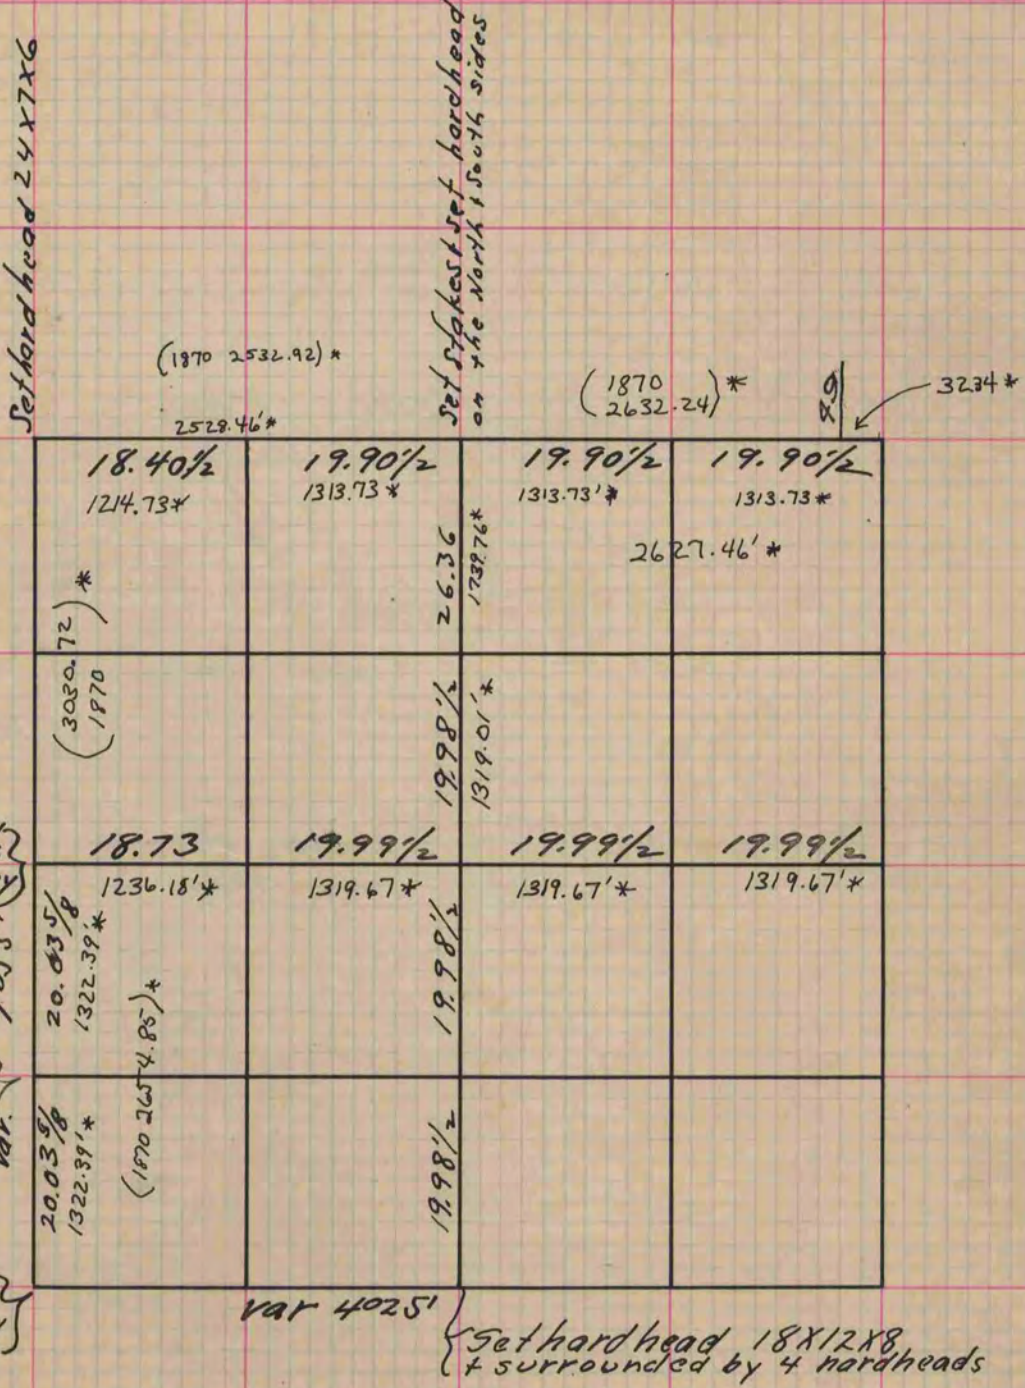 Set hardhead 24x7x6
Set stakes & set hardhead
on the North & South sides
(1870 2532.92) *
2528.46' *
(1870
2632.24) *
49
3234 *
18.40 1/2
1214.73 *
19.90 1/2
1313.73 *
19.90 1/2
1313.73' *
19.90 1/2
1313.73 *
26.36
1739.76 *
2627.46' *
(3080.72) *
1870
19.98 1/2
1319.01' *
18.73
1236.18' *
19.99 1/2
1319.67 *
19.99 1/2
1319.67' *
19.99 1/2
1319.67' *
20.03 5/8
1322.39' *
19.98 1/2
(1870 2654.85) *
var.
20.03 5/8
1322.39' *
19.98 1/2
var 4025'
{ Set hardhead 18X12X8
+ surrounded by 4 hardheads